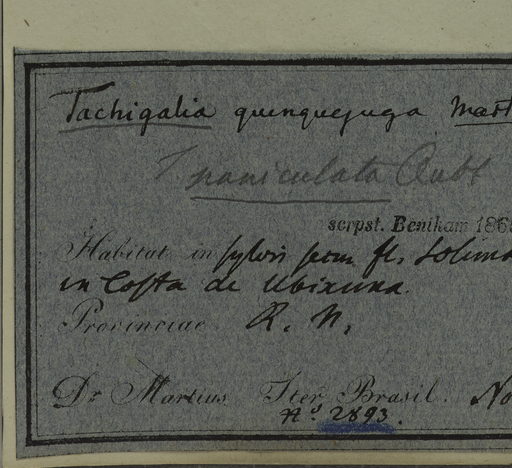 Tachigalia quinquejuga Mart
T paniculata Aubl
scrpst. Bentham 186
Habitat in sylvis secus fl. Solimo
in Costa de Ubixuna.
Provinciae R. N.
Dr Martius. Iter Brasil. No
No 2893.